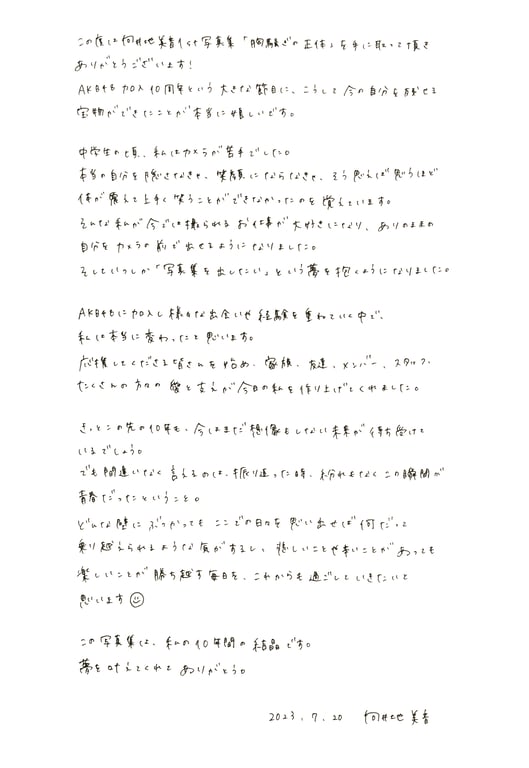 この度は向井地美音1st写真集「胸騒ぎの正体」を手に取って頂き
ありがとうございます!
AKB48加入10周年という大きな節目に、こうして今の自分を残せる
宝物ができたことが本当に嬉しいです。
中学生の頃、私はカメラが苦手でした。
本当の自分を隠さなきゃ、笑顔にならなきゃ、そう思えば思うほど
体が震えて上手く笑うことができなかったのを覚えています。
そんな私が今では撮られるお仕事が大好きになり、ありのままの
自分をカメラの前で出せるようになりました。
そしていつしか「写真集を出したい」という夢を抱くようになりました。
AKB48に加入し様々な出会いや経験を重ねていく中で、
私は本当に変わったと思います。
応援してくださる皆さんを始め、家族、友達、メンバー、スタッフ、
たくさんの方々の愛と支えが今日の私を作り上げてくれました。
きっとこの先の10年も、今はまだ想像もしない未来が待ち受けて
いるでしょう。
でも間違いなく言えるのは、振り返った時、紛れもなくこの瞬間が
青春だったということ。
どんな壁にぶつかってもここでの日々を思い出せば何だって
乗り越えられるような気がするし、悲しいことや辛いことがあっても
楽しいことが勝ち越す毎日を、これからも過ごしていきたいと
思います☺
この写真集は、私の10年間の結晶です。
夢を叶えてくれてありがとう。
2023.7.20 向井地美音